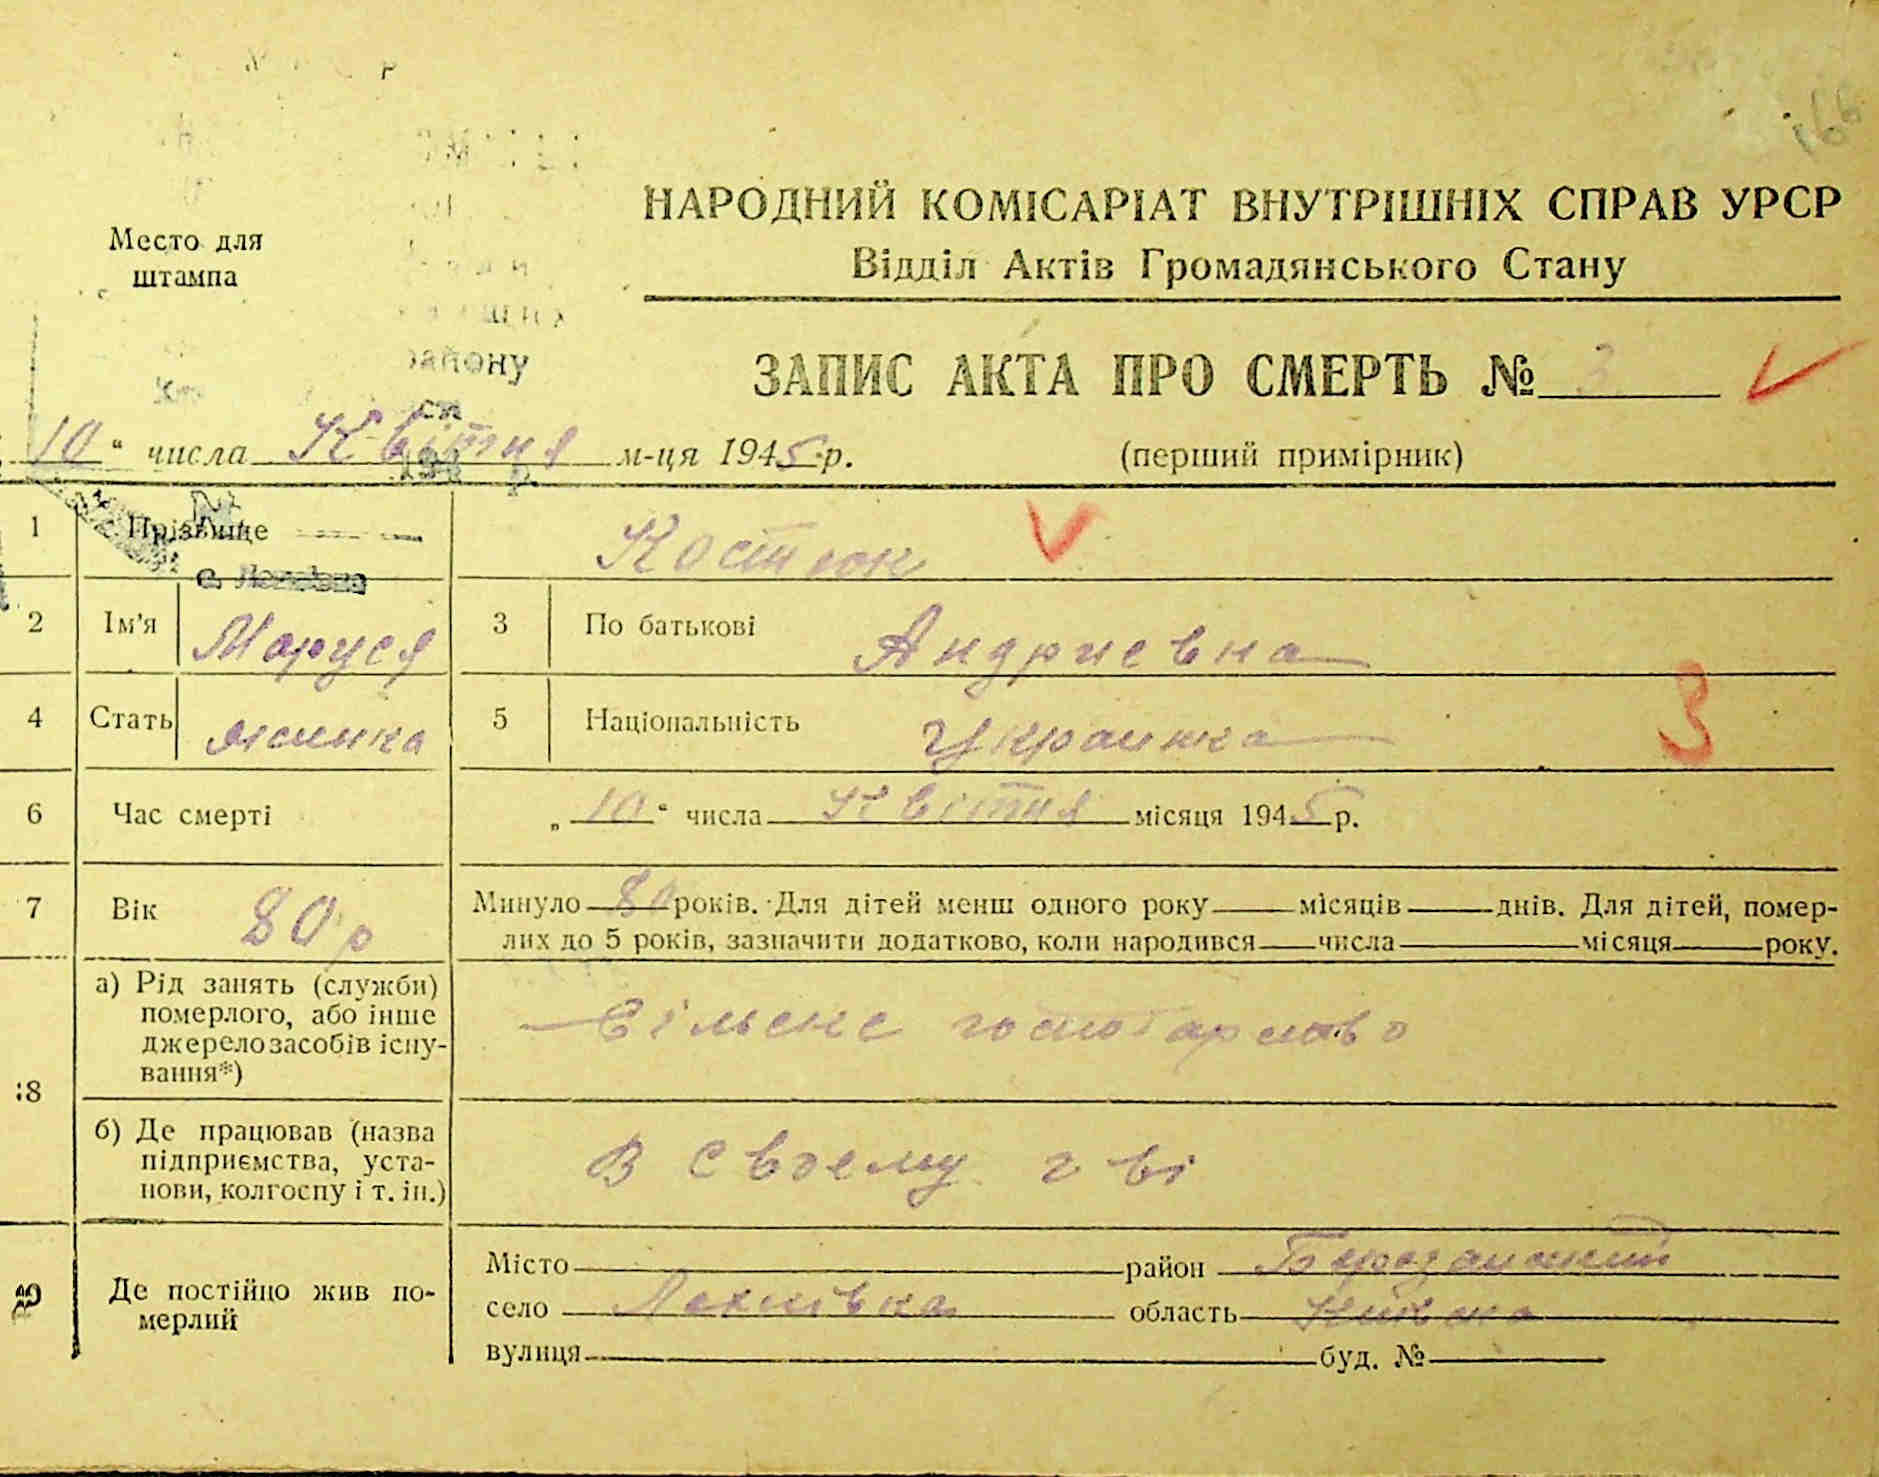 166
Место для
штампа
НАРОДНИЙ КОМІСАРІАТ ВНУТРІШНІХ СПРАВ УРСР
Відділ Актів Громадянського Стану
району
ЗАПИС АКТА ПРО СМЕРТЬ № 3
„10“ числа Квітня м-ця 1945 р.
(перший примірник)
1 Прізвище Костюк
2 Ім'я Маруся 3 По батькові Андриевна
4 Стать жинка 5 Національність Украинка 3
6 Час смерті „10“ числа Квітня місяця 1945 р.
7 Вік 80 р Минуло 80 років. Для дітей менш одного року місяців днів. Для дітей, помер-
лих до 5 років, зазначити додатково, коли народився числа місяця року.
8 а) Рід занять (служби)
померлого, або інше
джерело засобів існу-
вання*)
Сільске господарство
б) Де працював (назва
підприємства, уста-
нови, колгоспу і т. ін.)
В своему г ві
9 Де постійно жив по-
мерлий
Місто район Березанский
село Лехнівка область Київска
вулиця буд. №